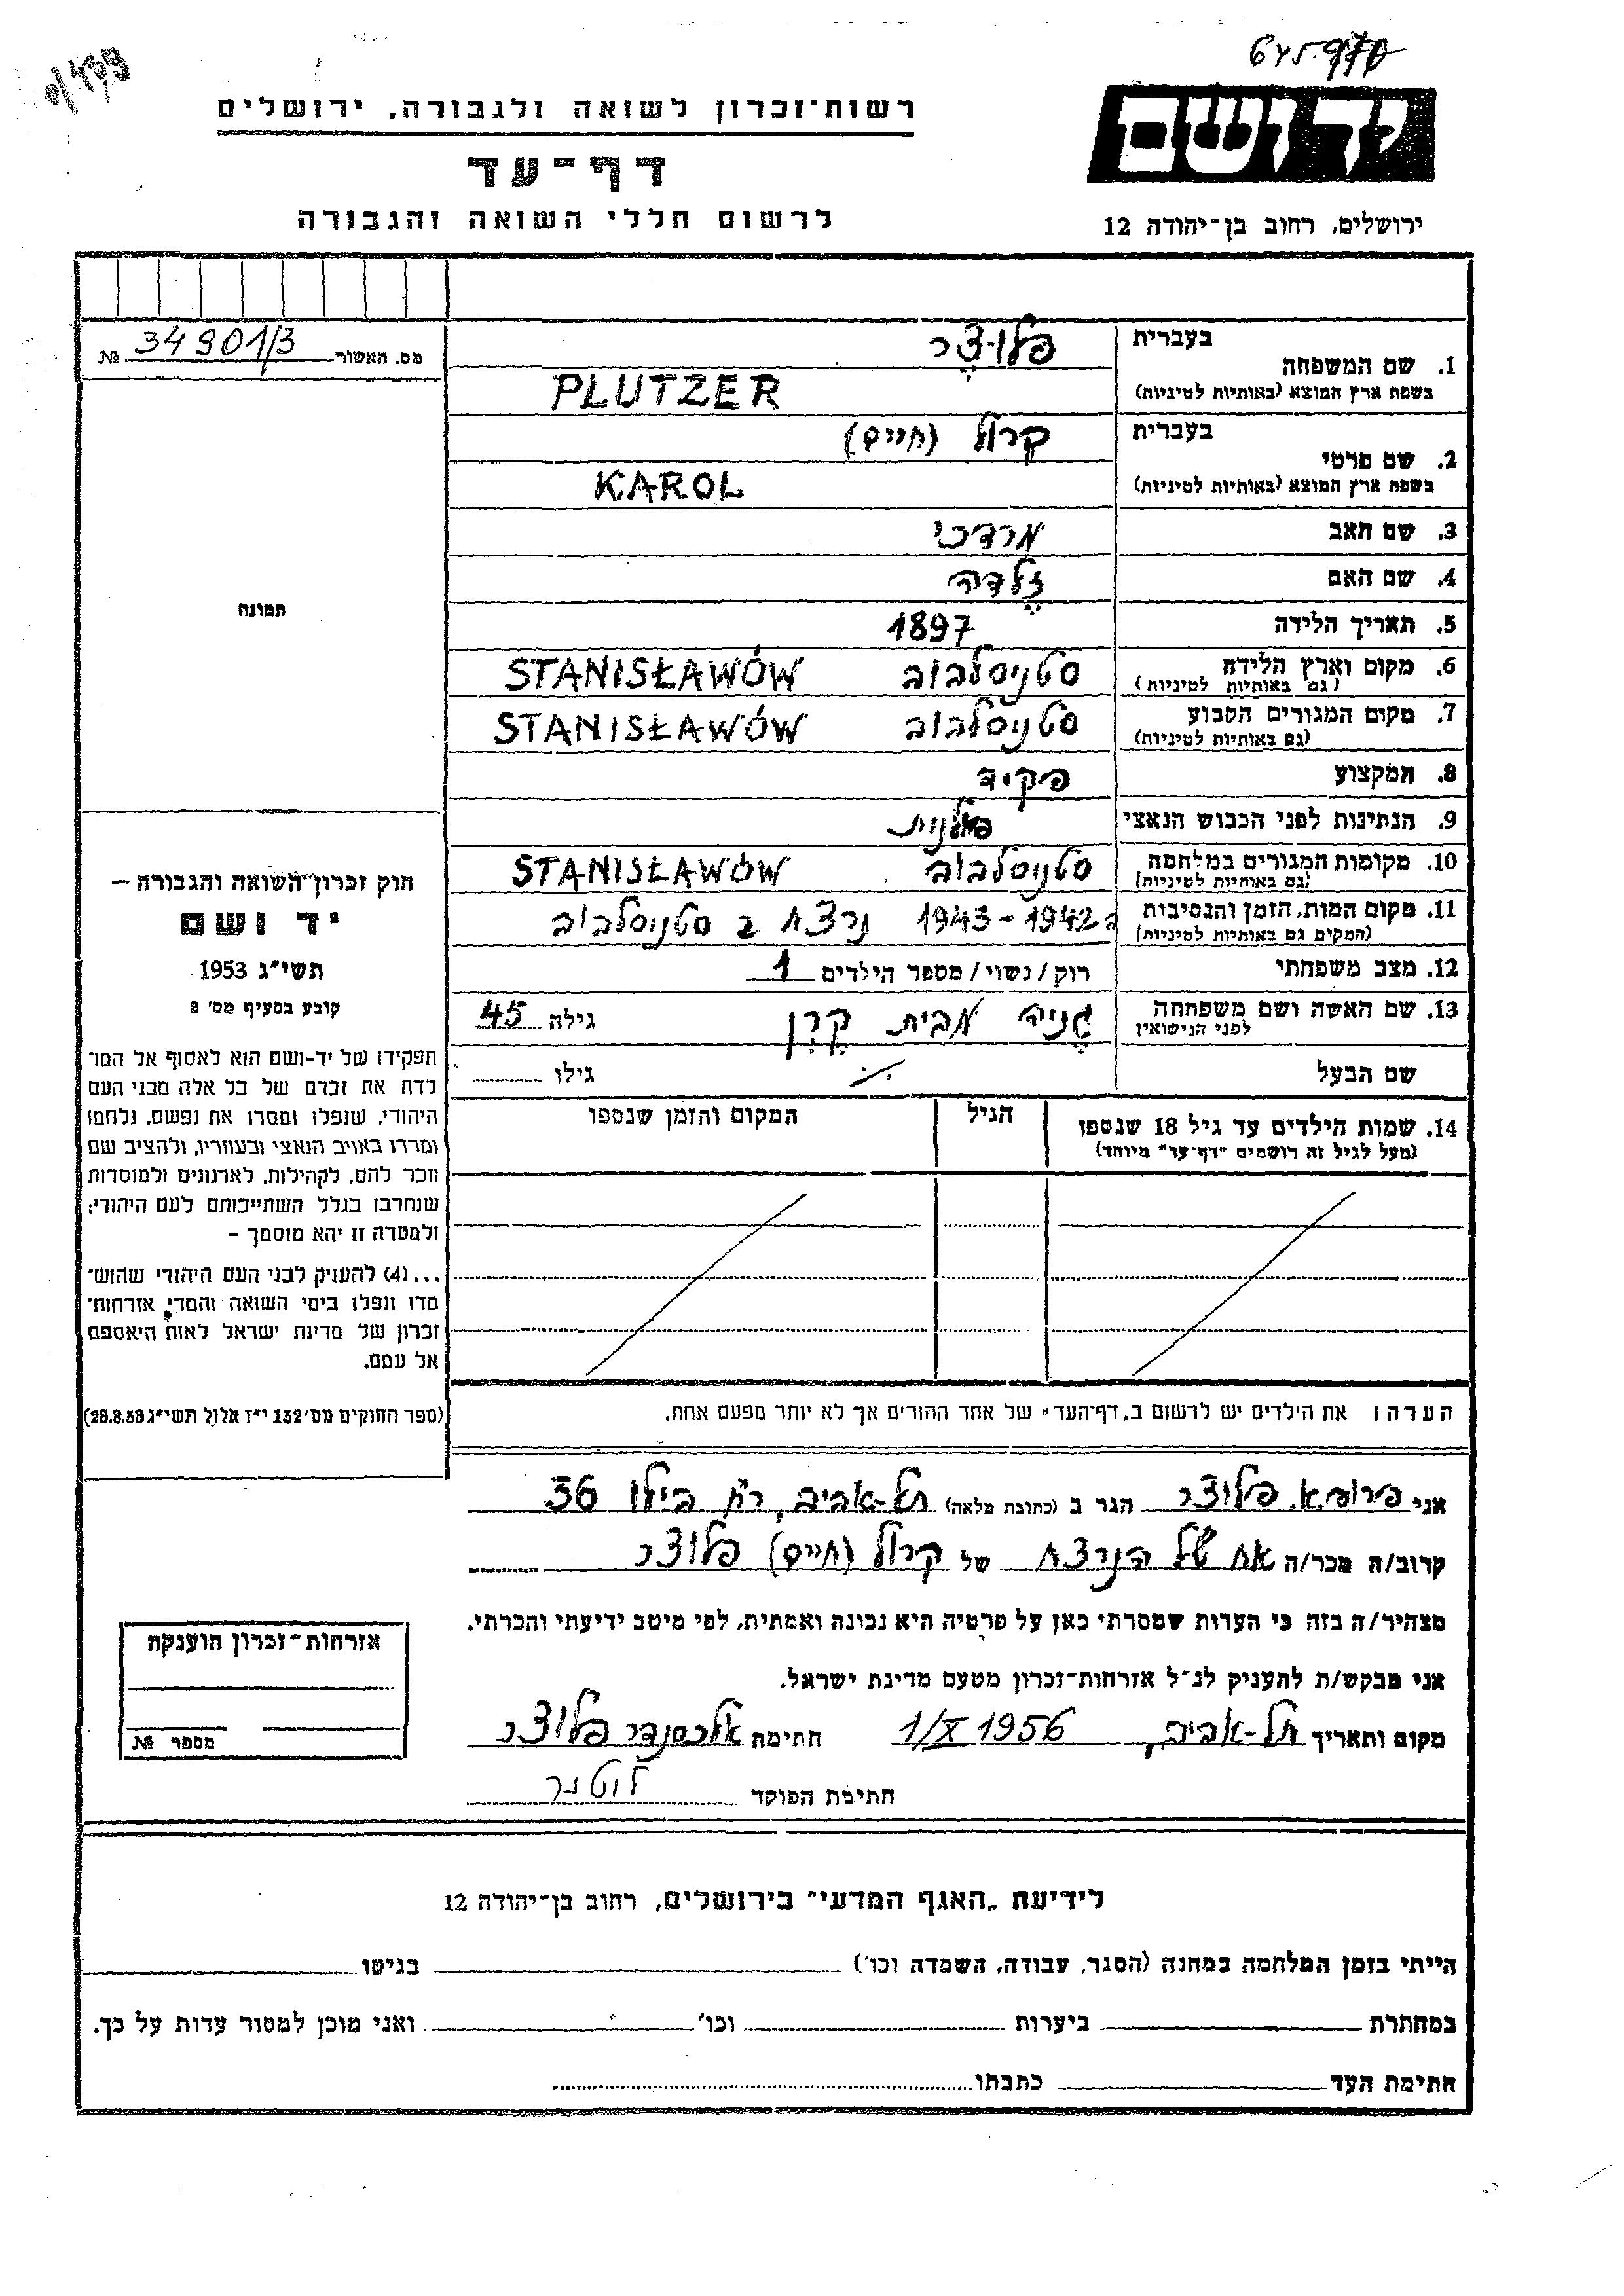 645.970
0/439
יד ושם
רשות־זכרון לשואה ולגבורה, ירושלים
דף־עד
לרשום חללי השואה והגבורה
ירושלים, רחוב בן־יהודה 12
מס. האשור 34901/3 №
תמונה
חוק זכרון־השואה והגבורה –
יד ושם
תשי״ג 1953
קובע בסעיף מס׳ 2
תפקידו של יד־ושם הוא לאסוף אל המו־
לדת את זכרם של כל אלה מבני העם
היהודי, שנפלו ומסרו את נפשם, נלחמו
ומרדו באויב הנאצי ובעוזריו, ולהציב שם
וזכר להם, לקהילות, לארגונים ולמוסדות
שנחרבו בגלל השתייכותם לעם היהודי;
ולמטרה זו יהא מוסמך –
...(4) להעניק לבני העם היהודי שהוש־
מדו ונפלו בימי השואה והמרי, אזרחות־
זכרון של מדינת ישראל לאות היאספם
אל עמם.
(ספר החוקים מס׳ 132 י״ז אלול תשי״ג 28.8.53)
בעברית פלוצר
1. שם המשפחה
בשפת ארץ המוצא (באותיות לטיניות) PLUTZER
בעברית קרול (חיים)
2. שם פרטי
בשפת ארץ המוצא (באותיות לטיניות) KAROL
3. שם האב מרדכי
4. שם האם זלדה
5. תאריך הלידה 1897
6. מקום וארץ הלידה סטניסלבוב STANISŁAWÓW
(גם באותיות לטיניות)
7. מקום המגורים הקבוע סטניסלבוב STANISŁAWÓW
(גם באותיות לטיניות)
8. המקצוע פקיד
9. הנתינות לפני הכבוש הנאצי פולנית
10. מקומות המגורים במלחמה סטניסלבוב STANISŁAWÓW
(גם באותיות לטיניות)
11. מקום המות, הזמן והנסיבות ב 1942-1943 נרצח ב סטניסלבוב
(המקום גם באותיות לטיניות)
12. מצב משפחתי רוק / נשוי / מספר הילדים 1
13. שם האשה ושם משפחתה גניה מבית קרן גילה 45
לפני הנישואין
שם הבעל ־/־ גילו
14. שמות הילדים עד גיל 18 שנספו הגיל המקום והזמן שנספו
(מעל לגיל זה רושמים ״דף־עד״ מיוחד)
הערה: את הילדים יש לרשום ב„דף־העד״ של אחד ההורים אך לא יותר מפעם אחת.
אני פרופ׳ א. פלוצר הגר ב (כתובת מלאה) תל-אביב, רח׳ ביל״ו 36
קרוב/ה מכר/ה אח של הנרצח של קרול (חיים) פלוצר
מצהיר/ה בזה כי העדות שמסרתי כאן על פרטיה היא נכונה ואמתית, לפי מיטב ידיעתי והכרתי.
אני מבקש/ת להעניק לנ״ל אזרחות־זכרון מטעם מדינת ישראל.
מקום ותאריך תל-אביב, 1/X 1956 חתימה אלכסנדר פלוצר
חתימת הפוקד
אזרחות־זכרון הוענקה
מספר №
לידיעת „האגף המדעי״ בירושלים, רחוב בן־יהודה 12
הייתי בזמן המלחמה במחנה (הסגר, עבודה, השמדה וכו׳) בגיטו
במחתרת ביערות וכו׳ ואני מוכן למסור עדות על כך.
חתימת העד כתבתו